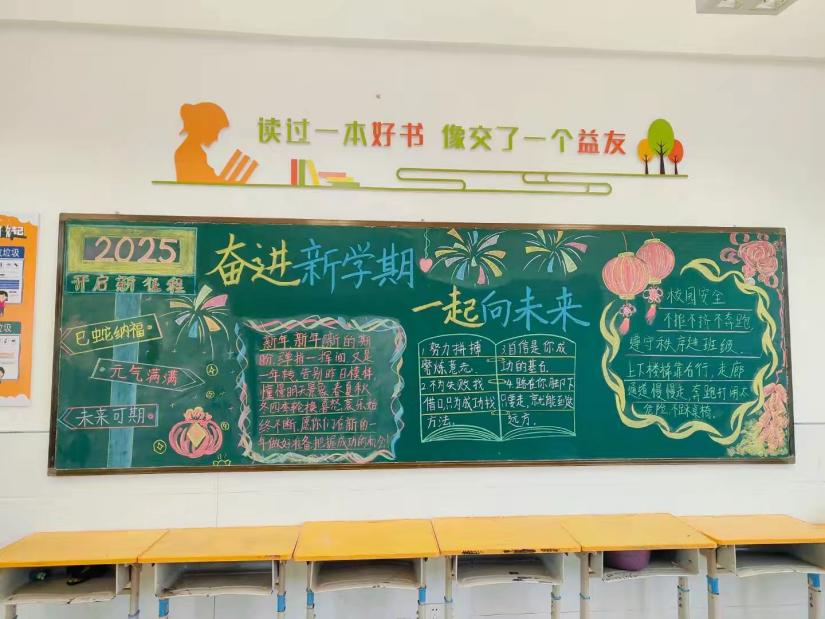 读过一本好书 像交了一个益友
2025
开启新征程
巳蛇纳福
元气满满
未来可期
奋进新学期
一起向未来
新年新年新的期
盼,弹指一挥间,又是
一年转,告别昨日模样,
憧憬明天景象,春夏秋
冬四季轮换,喜怒哀乐始
终不断,愿你们在新的一
年做好准备把握成功的
1.努力拼搏
磨炼意志.
2.不为失败找
借口只为成功找
方法.
3.自信是你成
功的基石.
4.路在你脚下
只要走,就能到达
远方.
校园安全
不推不挤不奔跑
遵守秩序进班级.
上下楼梯靠右行,走廊
慢慢走,奔跑打闹太
危险